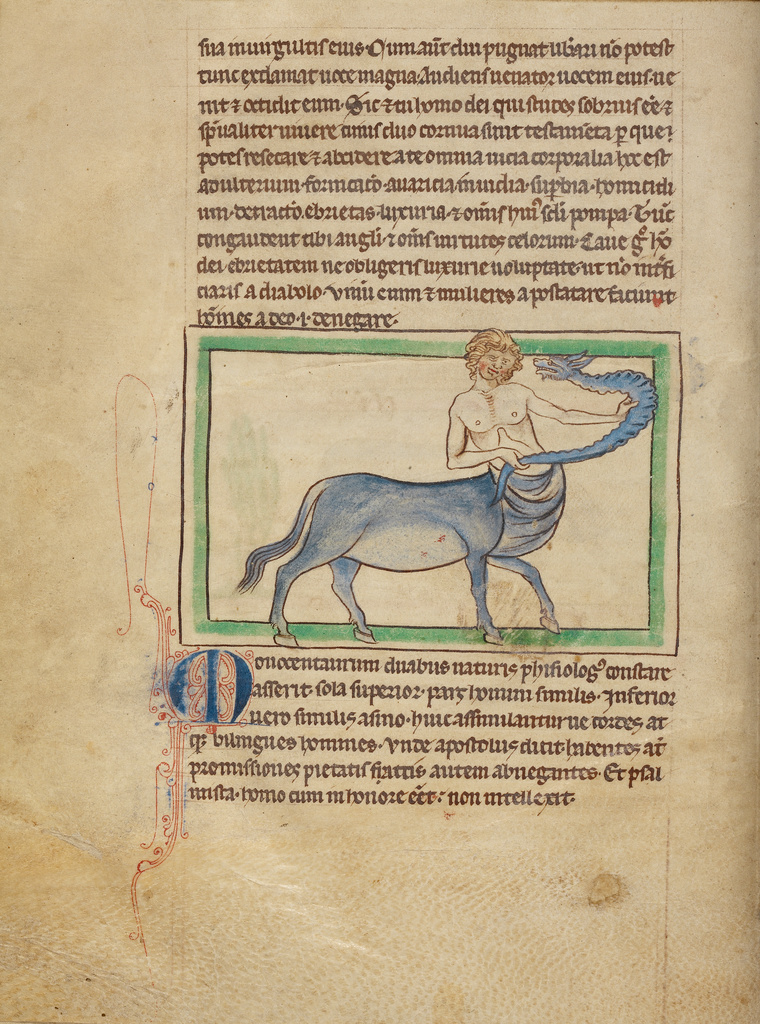 sua in uirgultis eius. Cum aūt diu pugnat ūbari nō potest
tunc exclamat uoce magna. Audiens uenator uocem eius ue
nit ⁊ occidit eum. Sic ⁊ tu homo dei qui studes sobrius eē ⁊
sp̄ualiter uiuere cuius duo cornua sunt testam̄eta p̱ que
potes resecare ⁊ abcidere a te omnia uicia corporalia hoc est
adulterium fornicatō. auaricia inuidia. suꝑbia. homicidi
um. detractō. ebrietas. luxuria. ⁊ om̄is hui᷒ sc̄li pompa. Tūc
congaudent tibi angl̄i ⁊ om̄s uirtutes celorum. Caue g̊ hō
dei ebrietatem ne obligeris luxurie uoluptate. ut nō int̄fi
ciaris a diabolo. Vinū enim ⁊ mulieres apostatare faciunt
hōines a deo .i. denegare.
Monocentaurum duabus naturis phisiolog᷒ constare
asserit. sola superior. pars homini similis. Inferior
uero similis asino. huic assimilantur uecordes at
q̱ꝫ bilingues homines. Vnde apostolus dicit habentes aūt
promissiones pietatis autem abnegantes. Et psal
mista. homo cum in honore eēt. non intellexit.